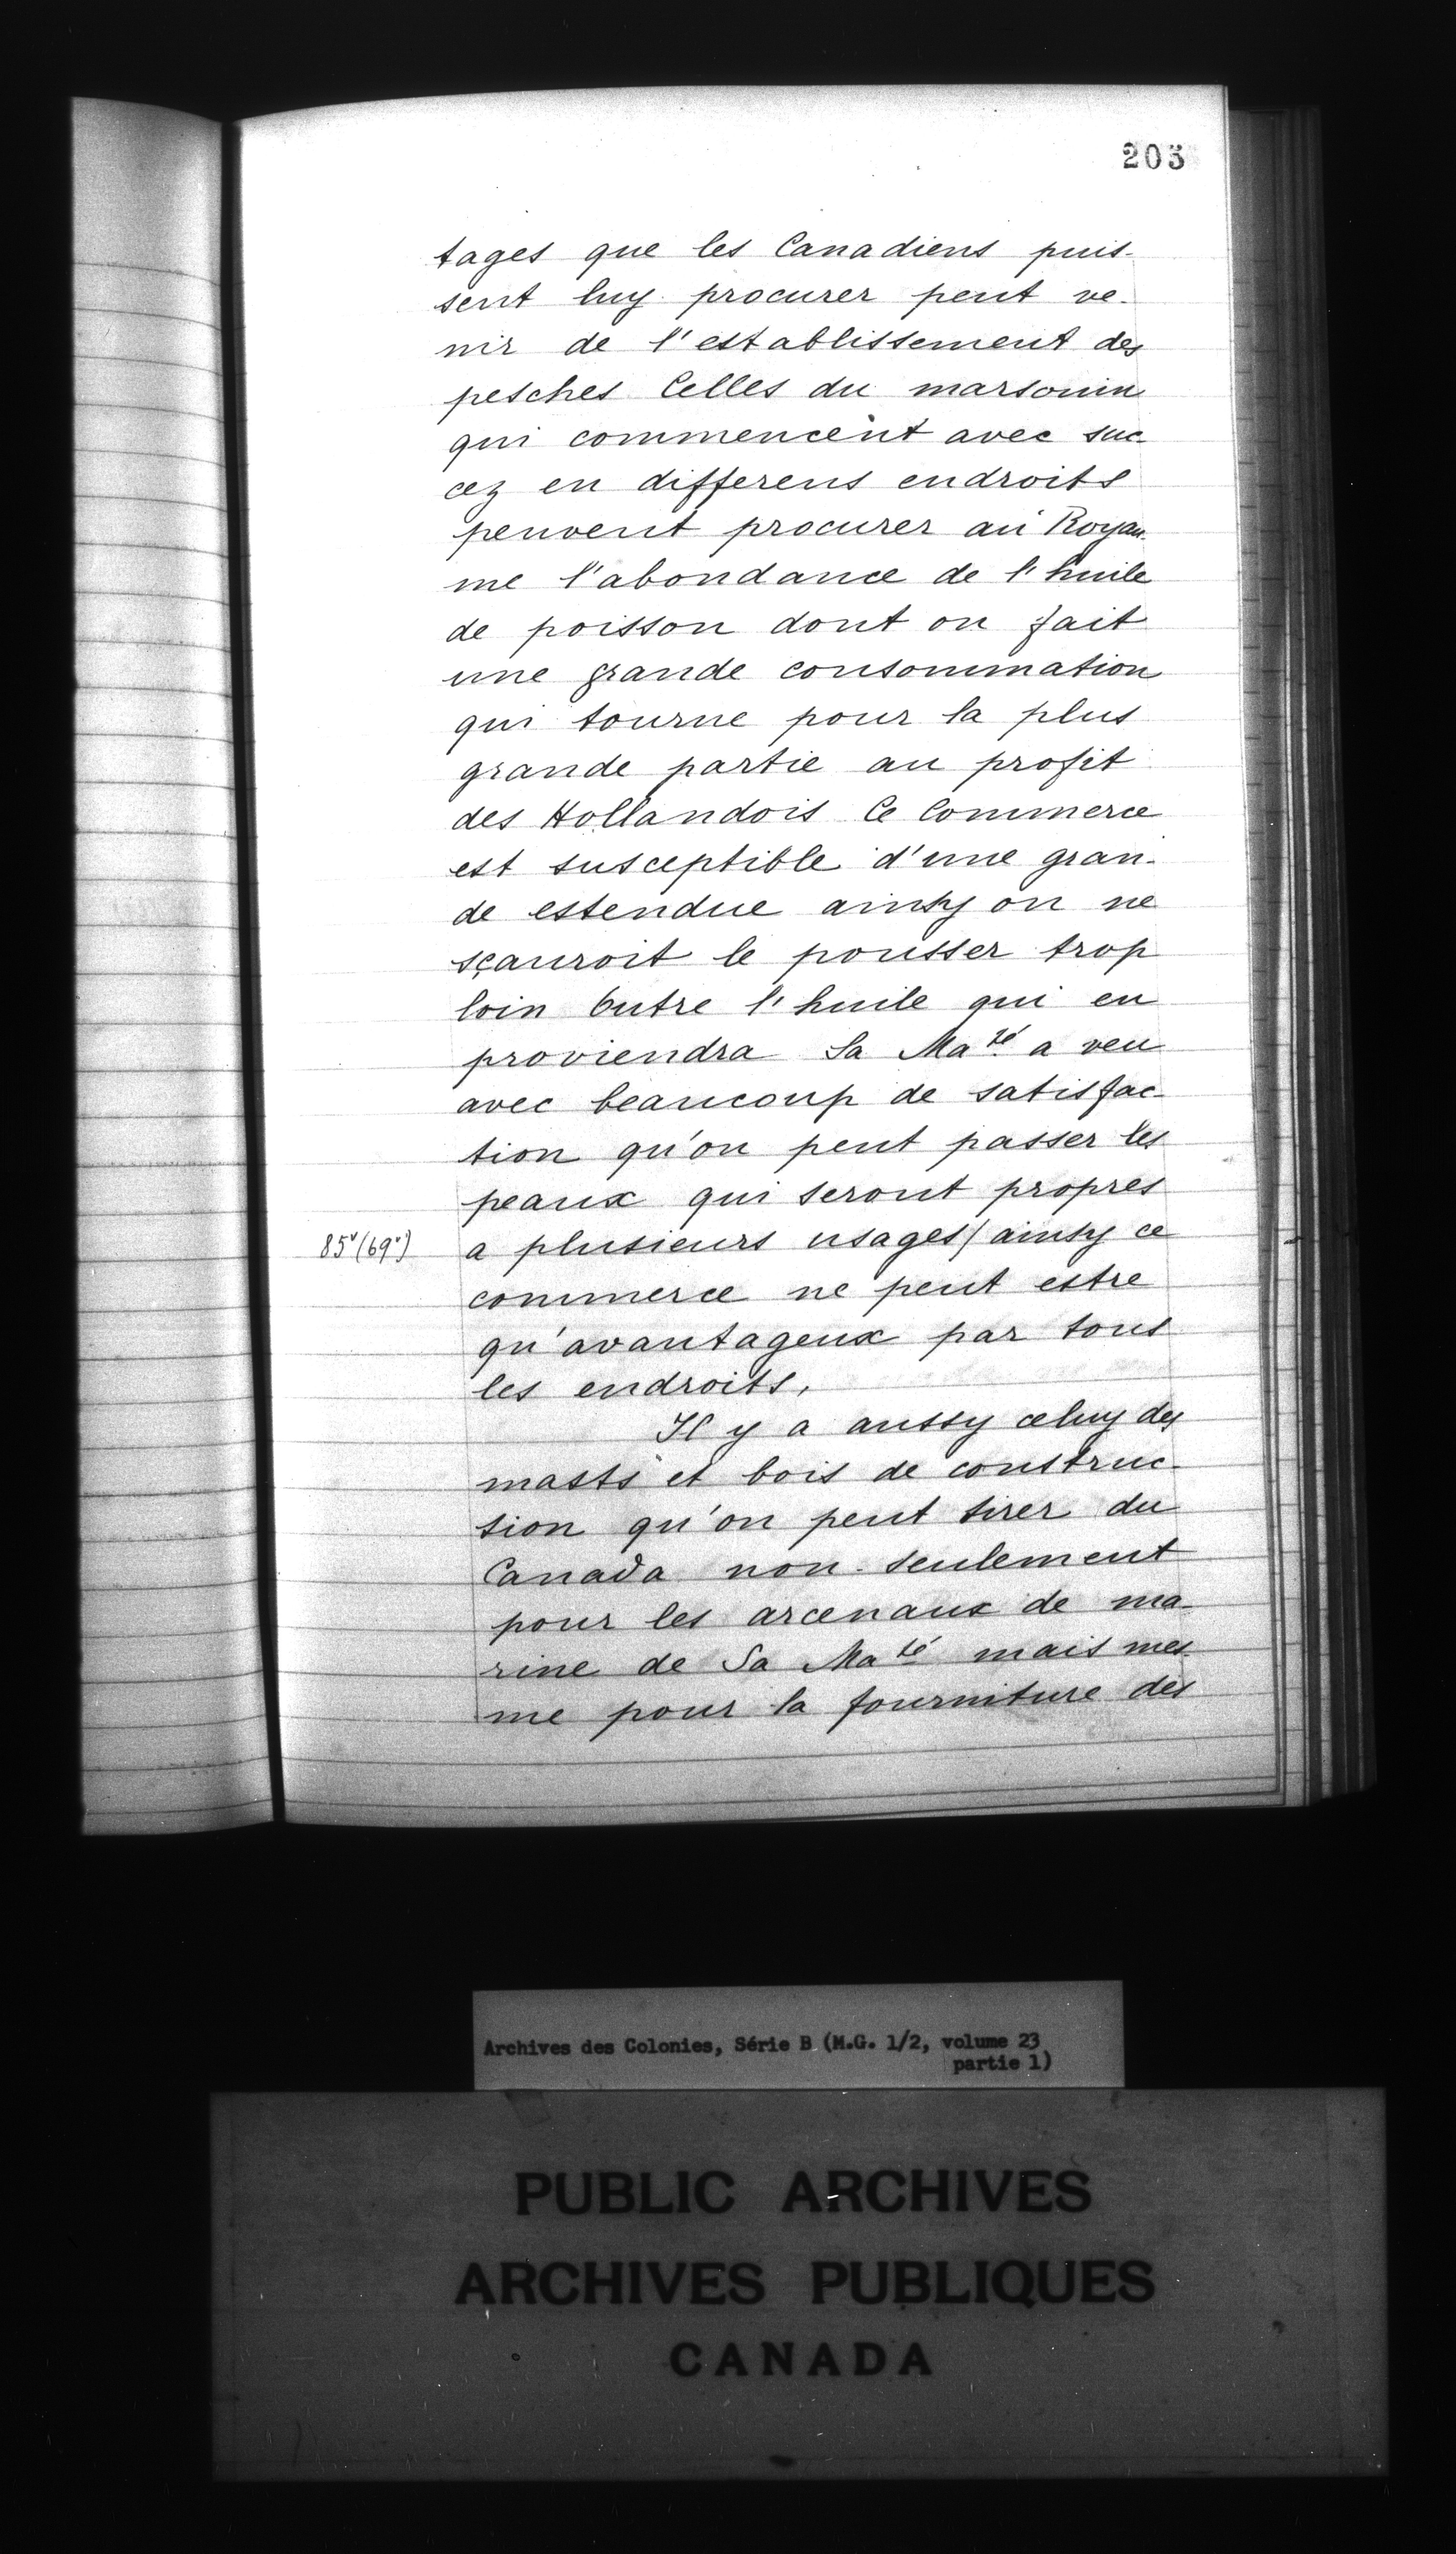 205
tages que les Canadiens puis-
sent luy procurer peut ve-
nir de l'establissement des
pesches Celles du marsouin
qui commencent avec suc-
cez en differens endroits
peuvent procurer au Royau-
me l'abondance de l'huile
de poisson dont on fait
une grande consommation
qui tourne pour la plus
grande partie au profit
des Hollandois Ce Commerce
est susceptible d'une gran-
de estendue ainsy on ne
sçauroit le pousser trop
loin Outre l'huile qui en
proviendra Sa Maté a veu
avec beaucoup de satisfac-
tion qu'on peut passer les
peaux qui seront propres
85v (69v) a plusieurs usages/ ainsy ce
commerce ne peut estre
qu'avantageux par tous
les endroits.
Il y a aussy celuy des
masts et bois de construc-
tion qu'on peut tirer du
Canada non-seulement
pour les arcenaux de ma-
rine de Sa Maté mais mes-
me pour la fourniture des
Archives des Colonies, Série B (M.G. 1/2, volume 23
partie 1)
PUBLIC ARCHIVES
ARCHIVES PUBLIQUES
CANADA